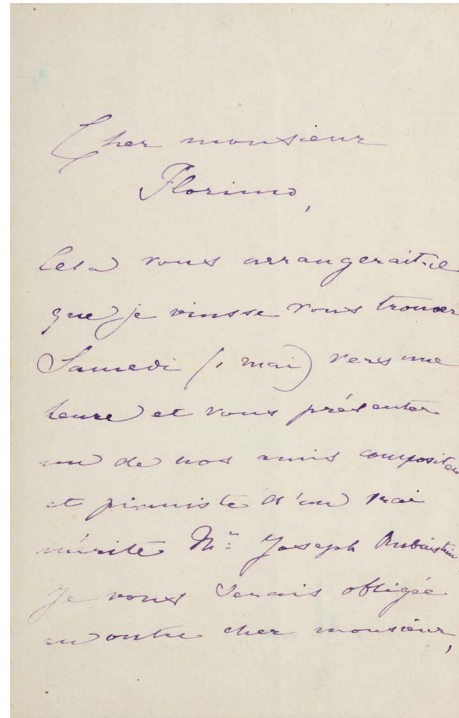 Cher monsieur
Florimo,
Cela vous arrangerait-il
que je vinsse vous trouver
Samedi (1 mai) vers une
heure et vous présenter
un de nos amis compositeur
et pianiste d'un vrai
mérite Mr: Joseph Rubinstein
Je vous serais obligée
en outre cher monsieur,